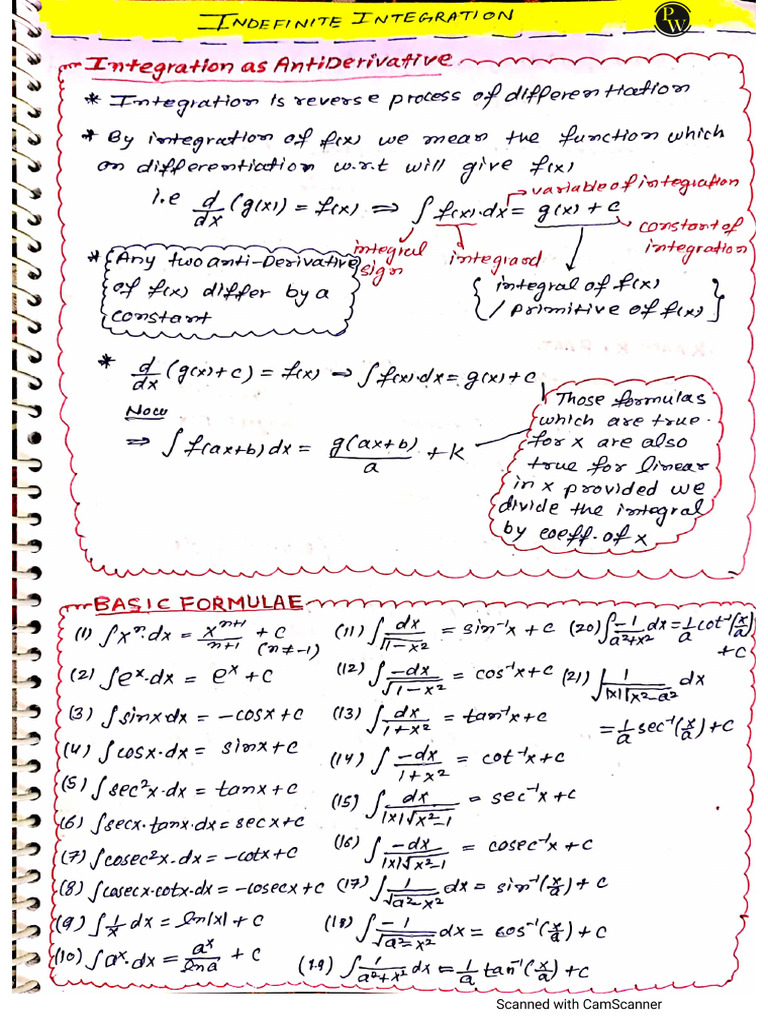 INDEFINITE INTEGRATION
PW
Integration as AntiDerivative
* Integration is reverse process of differentiation
* By integration of f(x) we mean the function which
on differentiation w.r.t will give f(x)
i.e d/dx (g(x)) = f(x) ⇒ ∫ f(x)·dx = g(x) + c
variable of integration
constant of
integration
integral
sign
integrand
{ integral of f(x)
/ Primitive of f(x) }
* Any two anti-Derivative
of f(x) differ by a
constant
* d/dx (g(x)+c) = f(x) ⇒ ∫f(x)·dx = g(x)+c
Now
⇒ ∫ f(ax+b)dx = g(ax+b)/a + k
Those formulas
which are true
for x are also
true for linear
in x provided we
divide the integral
by coeff. of x
BASIC FORMULAE
(1) ∫xⁿ·dx = xⁿ⁺¹/n+1 + c (n≠-1)
(2) ∫eˣ·dx = eˣ + c
(3) ∫sinx dx = -cosx + c
(4) ∫cosx·dx = sinx + c
(5) ∫sec²x·dx = tanx + c
(6) ∫secx·tanx·dx = secx + c
(7) ∫cosec²x·dx = -cotx + c
(8) ∫cosecx·cotx·dx = -cosecx + c
(9) ∫1/x dx = ln|x| + c
(10) ∫aˣ·dx = aˣ/lna + c
(11) ∫dx/√1-x² = sin⁻¹x + c
(12) ∫-dx/√1-x² = cos⁻¹x + c
(13) ∫dx/1+x² = tan⁻¹x + c
(14) ∫-dx/1+x² = cot⁻¹x + c
(15) ∫dx/|x|√x²-1 = sec⁻¹x + c
(16) ∫-dx/|x|√x²-1 = cosec⁻¹x + c
(17) ∫1/√a²-x² dx = sin⁻¹(x/a) + c
(18) ∫-1/√a²-x² dx = cos⁻¹(x/a) + c
(19) ∫1/a²+x² dx = 1/a tan⁻¹(x/a) + c
(20) ∫-1/a²+x² dx = 1/a cot⁻¹(x/a) + c
(21) ∫1/|x|√x²-a² dx
= 1/a sec⁻¹(x/a) + c
Scanned with CamScanner